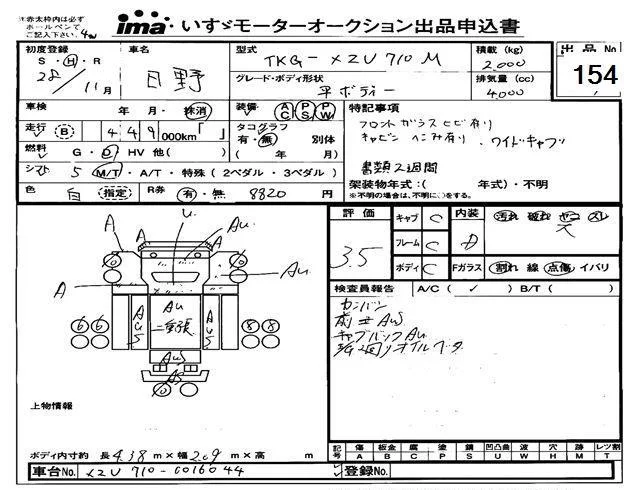 ※赤太枠内は必ず
ボールペンで
ご記入下さい。
ima いすゞモーターオークション出品申込書
初度登録 車名 型式 TKG-XZU710M 積載 (kg) 2.000 出品No
S・H・R 28/11月 日野 グレード・ボディ形状 平ボディー 排気量 (cc) 4000 154
車検 年 月・抹消 装備 AC PS PW 特記事項
走行 (B) 449000km「 」 タコグラフ 有・無 別体 フロントガラスヒビ有り
燃料 G・D HV 他( ) キャビンへこみ有り、ワイドキャブ
シフト 5 M/T・A/T・特殊(2ペダル・3ペダル) 書類2週間
色 白 指定 R券 有・無 8820円 架装物年式:( 年式)・不明
※不明の場合は、不明に○をする。
評価 3.5 キャブ C 内装 D 汚れ 破れ ヤニ スレ
フレーム C
ボディ C Fガラス 割れ 線 点傷 イバリ
検査員報告 A/C( ✓ ) B/T( )
カンバン
キャブバックAu
A U. Au
A A Au
Au
二重張
AuS AuS
6 6 8 8
AuS
上物情報
ボディ内寸約 長4.38m×幅2.09m×高 m
記号 傷 板金 腐 塗 錆 凹凸曲 波 穴 跡 レツ割
A B C P S U W H M T
車台No. XZU710-0016044 登録No.